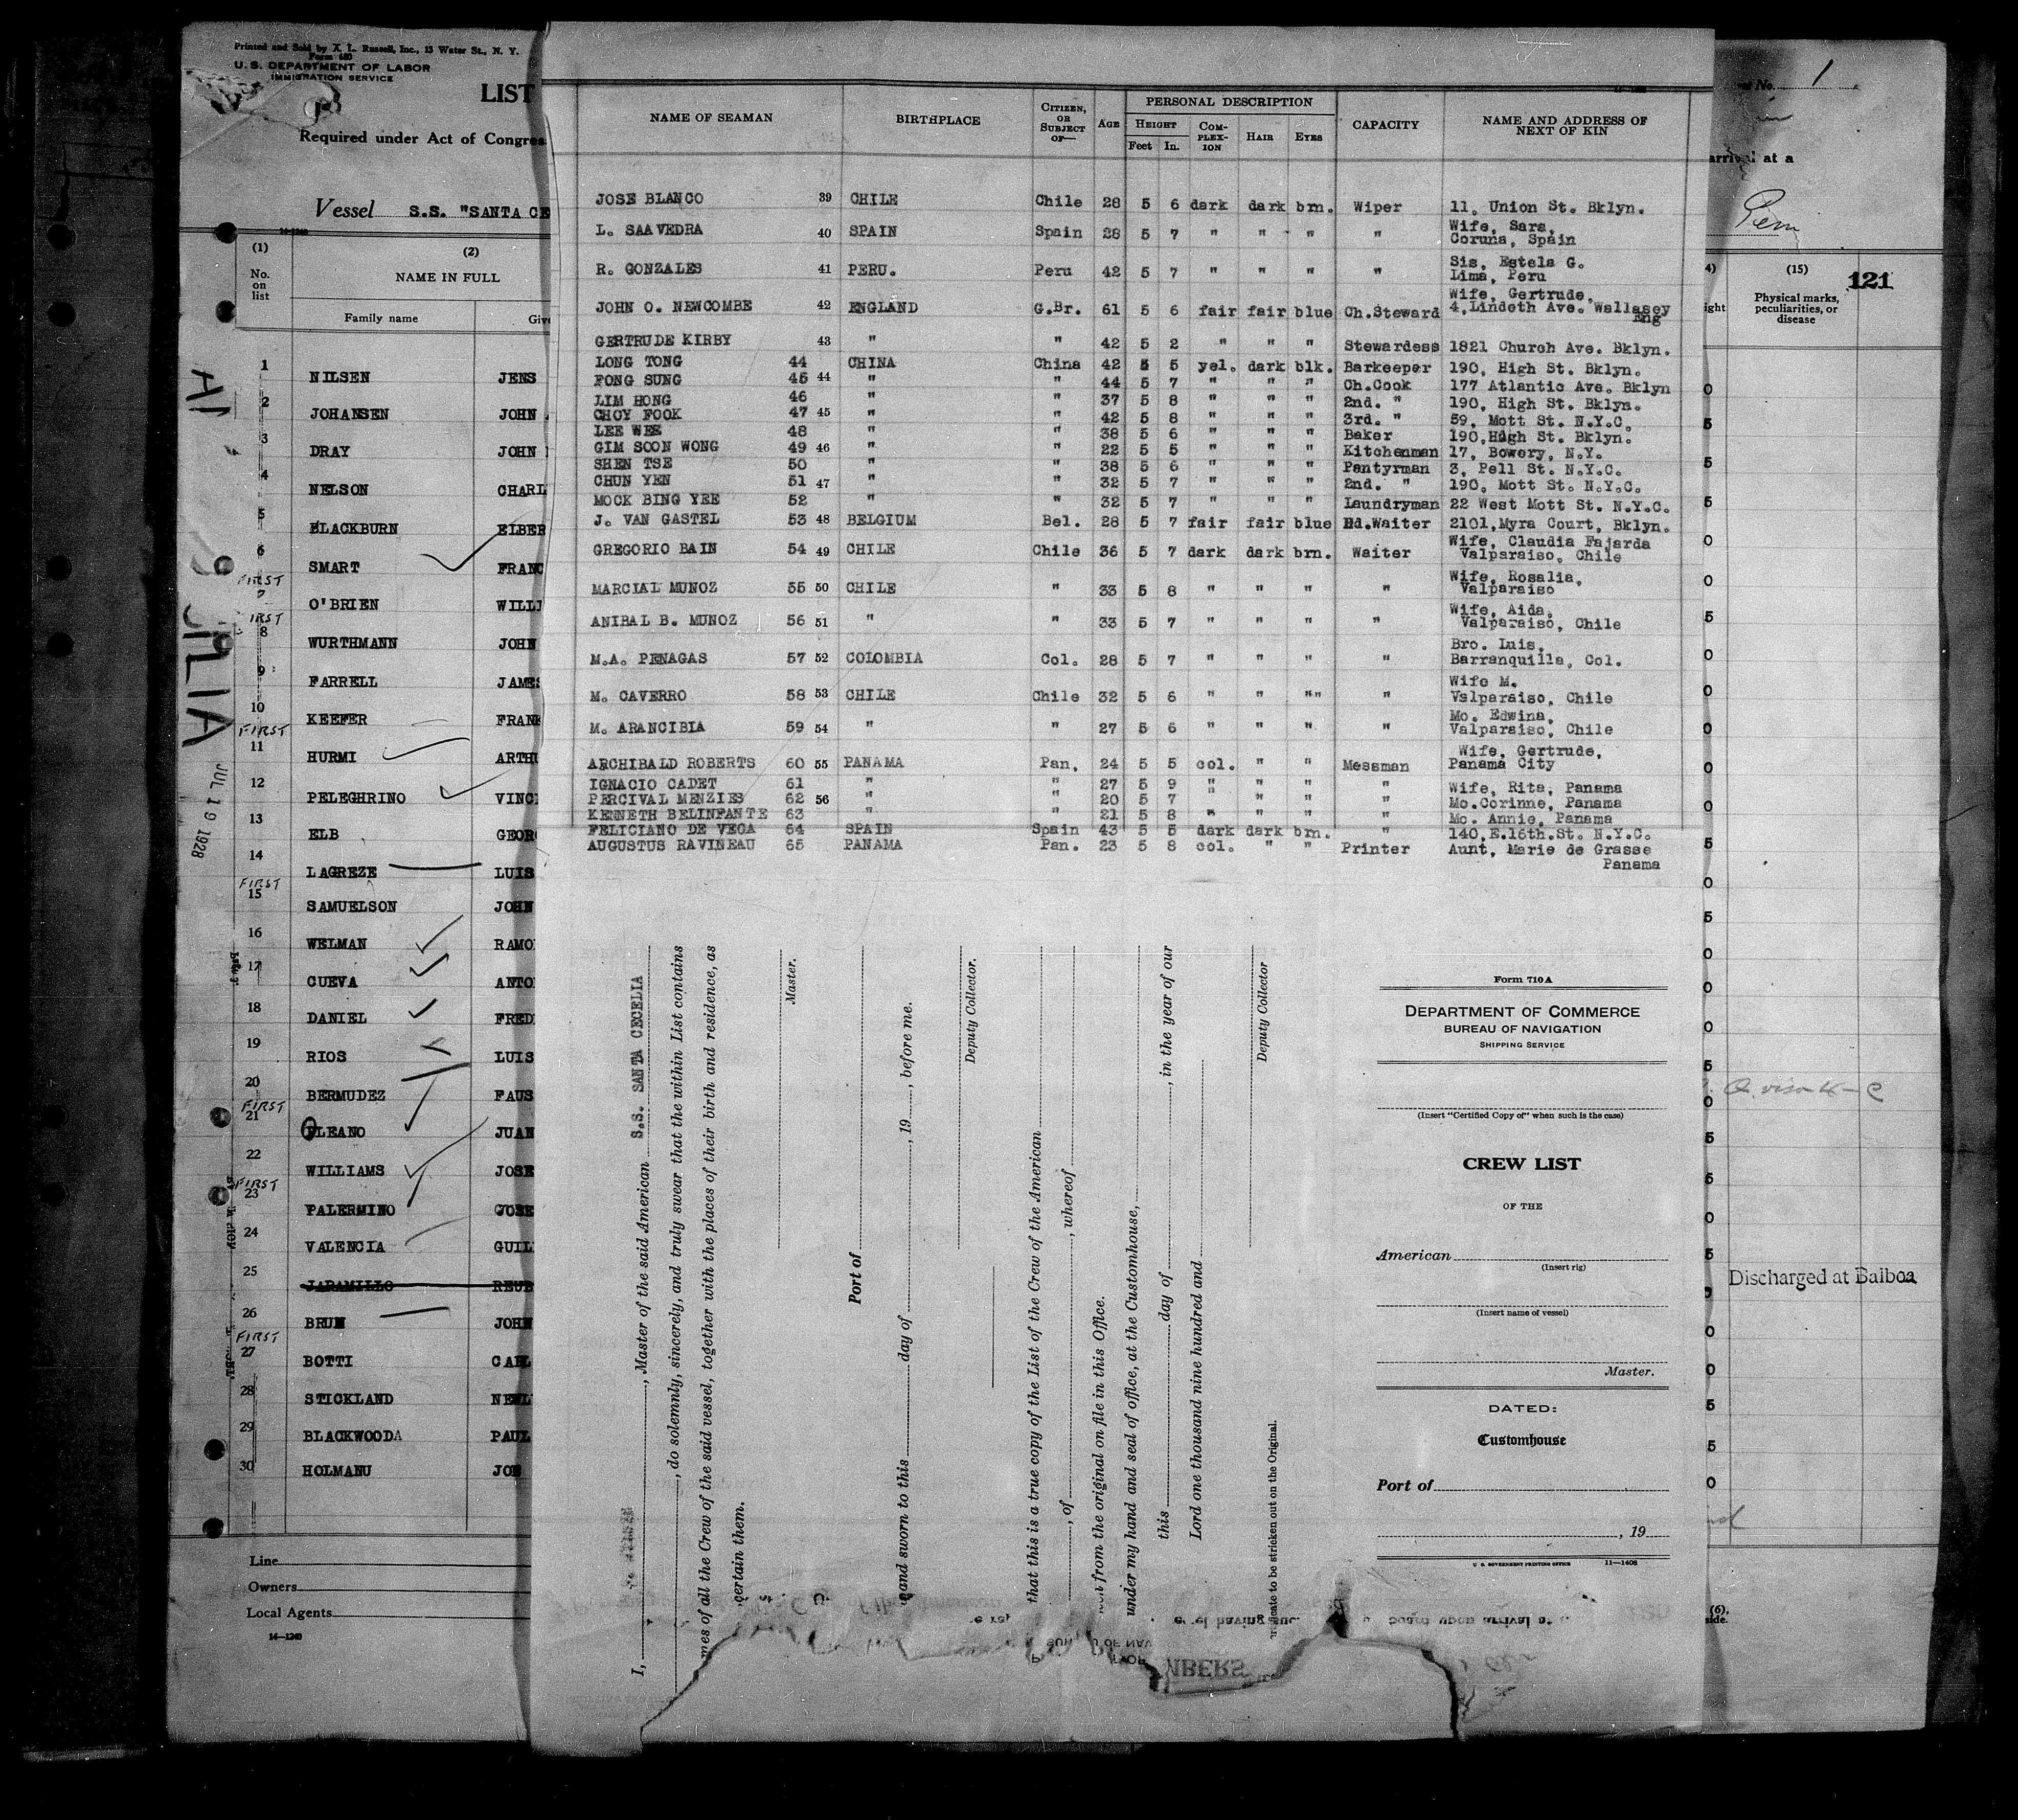 Printed and Sold by X. L. Russell, Inc., 13 Water St., N. Y.
Form 680
U. S. DEPARTMENT OF LABOR
IMMIGRATION SERVICE
LIST
Required under Act of Congres
Vessel S.S. "SANTA CE
14-1240
(1) (2)
No. on list
NAME IN FULL
Family name Giv
1 NILSEN JENS
2 JOHANSEN JOHN
3 DRAY JOHN
4 NELSON CHARL
5 BLACKBURN ELBER
6 SMART FRANC
FIRST
7 O'BRIEN WILLI
FIRST
8 WURTHMANN JOHN
9 FARRELL JAMES
10 KEEFER FRANK
FIRST
11 HURMI ARTHU
12 PELEGHRINO VINCE
13 ELB GEORG
14 LAGREZE LUIS
FIRST
15 SAMUELSON JOHN
16 WELMAN RAMO
17 CUEVA ANTO
18 DANIEL FRED
19 RIOS LUIS
20 BERMUDEZ FAUS
FIRST
21 OLEANO JUAN
22 WILLIAMS JOSE
FIRST
23 PALERMINO JOSE
24 VALENCIA GUIL
25 JARAMILLO REUB
26 BRUN JOHN
FIRST
27 BOTTI CARL
28 STICKLAND NEWL
29 BLACKWOODA PAUL
30 HOLMANU JON
Line
Owners
Local Agents
14-1240
JUL 19 1928
NAME OF SEAMAN BIRTHPLACE CITIZEN, OR SUBJECT OF— AGE PERSONAL DESCRIPTION CAPACITY NAME AND ADDRESS OF NEXT OF KIN
HEIGHT Feet In. COM-PLEX-ION HAIR EYES
JOSE BLANCO 39 CHILE Chile 28 5 6 dark dark brn. Wiper 11, Union St. Bklyn.
L. SAAVEDRA 40 SPAIN Spain 28 5 7 " " " " Wife, Sara, Coruna, Spain
R. GONZALES 41 PERU. Peru 42 5 7 " " " " Sis, Estela G. Lima, Peru
JOHN O. NEWCOMBE 42 ENGLAND G.Br. 61 5 6 fair fair blue Ch.Steward Wife, Gertrude, 4,Lindeth Ave. Wallasey Eng
GERTRUDE KIRBY 43 " " 42 5 2 " " " Stewardess 1821 Church Ave. Bklyn.
LONG TONG 44 CHINA China 42 5 5 yel. dark blk. Barkeeper 190, High St. Bklyn.
FONG SUNG 45 44 " " 44 5 7 " " " Ch.Cook 177 Atlantic Ave. Bklyn
LIM HONG 46 " " 37 5 8 " " " 2nd. " 190, High St. Bklyn.
CHOY FOOK 47 45 " " 42 5 8 " " " 3rd. " 59, Mott St. N.Y.C.
LEE WEE 48 " " 38 5 6 " " " Baker 190,High St. Bklyn.
GIM SOON WONG 49 46 " " 22 5 5 " " " Kitchenman 17, Bowery, N.Y.
SHEN TSE 50 " " 38 5 6 " " " Pantyrman 3, Pell St. N.Y.C.
CHUN YEN 51 47 " " 32 5 7 " " " 2nd. " 190, Mott St. N.Y.C.
MOCK BING YEE 52 " " 32 5 7 " " " Laundryman 22 West Mott St. N.Y.C.
J. VAN GASTEL 53 48 BELGIUM Bel. 28 5 7 fair fair blue Hd.Waiter 2101,Myra Court, Bklyn.
GREGORIO BAIN 54 49 CHILE Chile 36 5 7 dark dark brn. Waiter Wife, Claudia Fajarda Valparaiso, Chile
MARCIAL MUNOZ 55 50 CHILE " 33 5 8 " " " " Wife, Rosalia, Valparaiso
ANIBAL B. MUNOZ 56 51 " " 33 5 7 " " " " Wife, Aida, Valparaiso, Chile
M.A. PENAGAS 57 52 COLOMBIA Col. 28 5 7 " " " " Bro. Luis, Barranquilla, Col.
M. CAVERRO 58 53 CHILE Chile 32 5 6 " " "" " Wife M. Valparaiso, Chile
M. ARANCIBIA 59 54 " " 27 5 6 " " " " Mo. Edwina, Valparaiso, Chile
ARCHIBALD ROBERTS 60 55 PANAMA Pan. 24 5 5 col. " " Messman Wife, Gertrude, Panama City
IGNACIO CADET 61 " " 27 5 9 " " " " Wife, Rita, Panama
PERCIVAL MENZIES 62 56 " " 20 5 7 " " " " Mo.Corinne, Panama
KENNETH BELINFANTE 63 " " 21 5 8 " " " " Mo. Annie, Panama
FELICIANO DE VEGA 64 SPAIN Spain 43 5 5 dark dark brn. " 140, E.16th.St. N.Y.C.
AUGUSTUS RAVINEAU 65 PANAMA Pan. 23 5 8 col. " " Printer Aunt, Marie de Grasse Panama
I, , Master of the said American S.S. SANTA CECELIA
, do solemnly, sincerely, and truly swear that the within List contains
mes of all the Crew of the said vessel, together with the places of their birth and residence, as
certain them.
Master.
Port of
and sworn to this day of , 19 , before me.
Deputy Collector.
that this is a true copy of the List of the Crew of the American
, of , whereof
from the original on file in this Office.
under my hand and seal of office, at the Customhouse,
this day of , in the year of our
Lord one thousand nine hundred and
Deputy Collector
ificate to be stricken out on the Original.
Form 710 A
DEPARTMENT OF COMMERCE
BUREAU OF NAVIGATION
SHIPPING SERVICE
(Insert "Certified Copy of" when such is the case)
CREW LIST
OF THE
American
(Insert rig)
(Insert name of vessel)
Master.
DATED:
Customhouse
Port of
, 19
U. S. GOVERNMENT PRINTING OFFICE 11—1408
No. 1
arrival at a
Peru
(15)
121
Physical marks, peculiarities, or disease
Discharged at Balboa